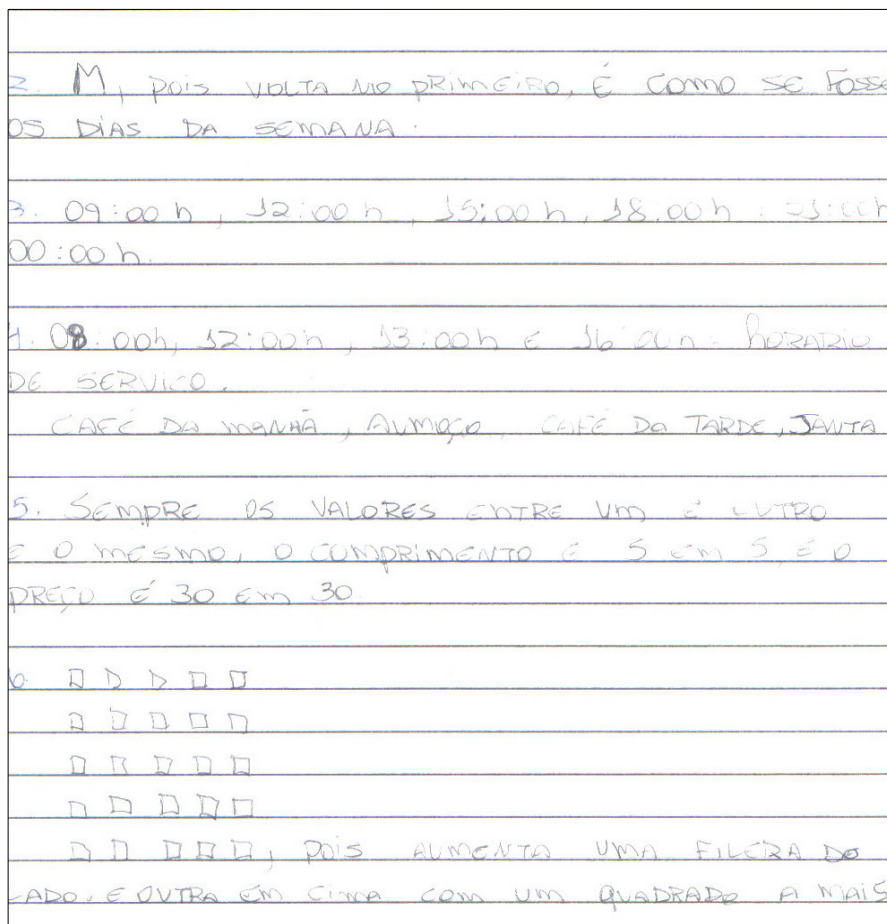 2. M, POIS VOLTA NO PRIMEIRO, É COMO SE FOSSE
OS DIAS DA SEMANA.
3. 09:00 h, 12:00 h, 15:00 h, 18:00 h, 21:00 h
00:00 h.
4. 08:00h, 12:00h, 13:00h E 16:00h - HORARIO
DE SERVICO.
CAFÉ DA MANHÃ, AUMOÇO, CAFÉ DA TARDE, JANTA
5. SEMPRE OS VALORES ENTRE UM E OUTRO
É O MESMO, O COMPRIMENTO É 5 EM 5, E O
PREÇO É 30 EM 30.
6.
, POIS AUMENTA UMA FILERA DO
LADO, E OUTRA EM CIMA COM UM QUADRADO A MAIS